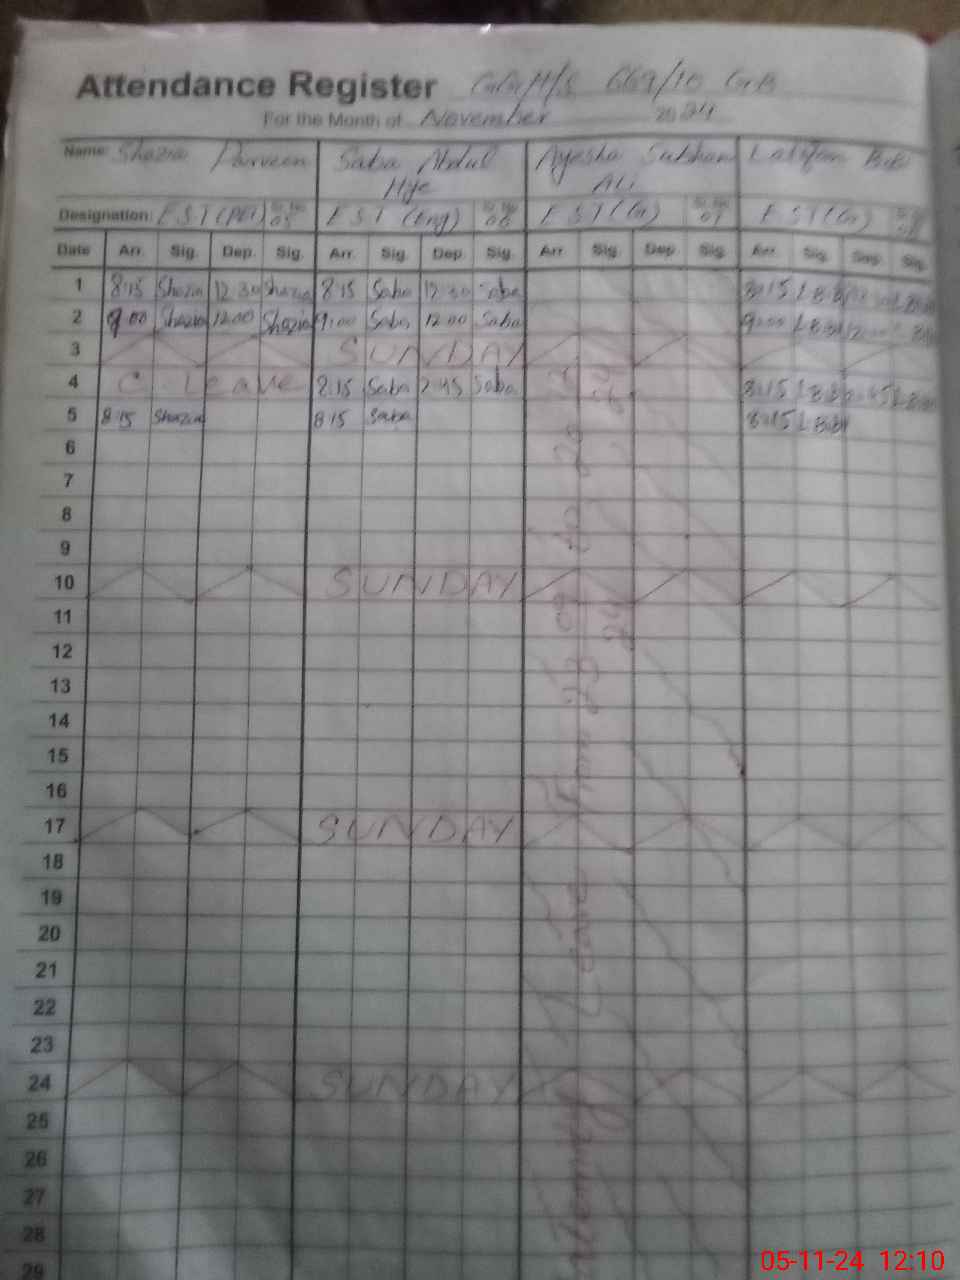 Attendance Register GGH/S 669/10 GB
For the Month of November 2024
Name: Shazia Parveen Saba Abdul Hye Ayesha Subhan Ali Latifan Bibi
Designation: EST (PET) Sr. No. 05 EST (Eng) Sr. No. 06 EST (G) Sr. No. 07 EST (G)
Date Arr. Sig. Dep. Sig. Arr. Sig. Dep. Sig. Arr. Sig. Dep. Sig. Arr. Sig. Dep. Sig.
1 8:15 Shazia 12:30 Shazia 8:15 Saba 12:30 Saba 8:15 L Bibi L Bibi
2 9:00 Shazia 12:00 Shazia 9:00 Saba 12:00 Saba 9:00 L Bibi
3 SUNDAY
4 C. Leave 8:15 Saba 2:45 Saba 8:15 L Bibi 2:45 L Bibi
5 8:15 Shazia 8:15 Saba 8:15 L Bibi
6
7
8
9
10 SUNDAY
11
12
13
14
15
16
17 SUNDAY
18
19
20
21
22
23
24 SUNDAY
25
26
27
28
29
Leave From 23 09 24 to 20 12 24
05-11-24 12:10